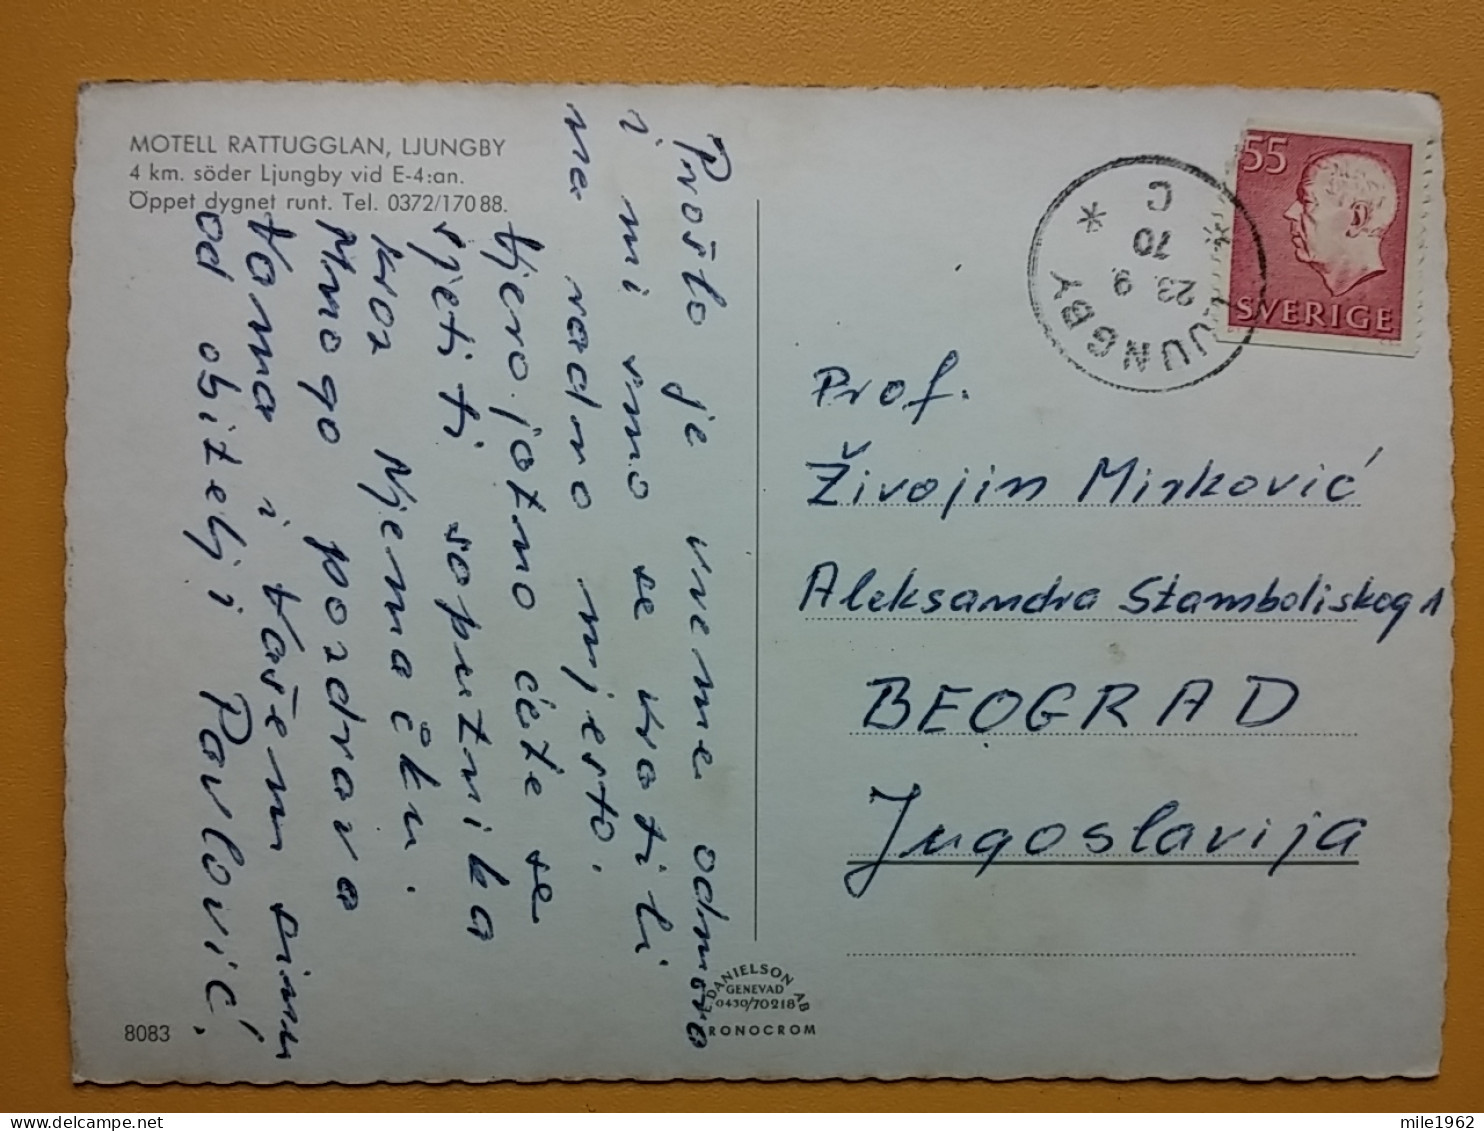 MOTELL RATTUGGLAN, LJUNGBY
4 km. söder Ljungby vid E-4:an.
Öppet dygnet runt. Tel. 0372/170 88.
Prošlo je vreme odmora
i mi smo se vratili
na radno mjesto.
Vjerojatno ćete se
sjetiti soputnika
kroz Njemačku.
Mnogo pozdrava
Vama i Vašem sinu
od obitelji Pavlović.
8083
DANIELSON AB
GENEVAD
0430/70218
RONOCROM
55
SVERIGE
LJUNGBY
23. 9
70
C
Prof.
Živojin Mirković
Aleksandra Stamboliskog 1
BEOGRAD
Jugoslavija
mile1962